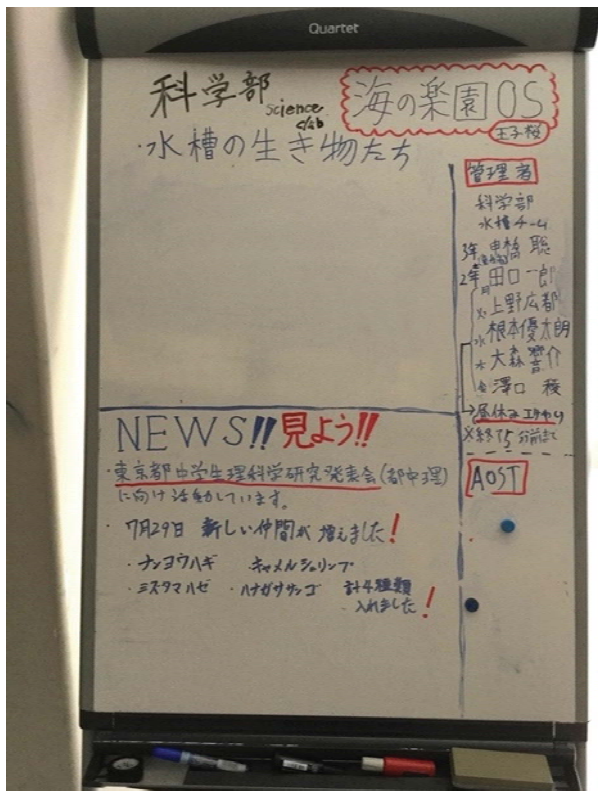 Quartet
科学部
science
club
海の楽園OS
王子桜
・水槽の生き物たち
管理者
科学部
水槽チーム
3年 串橋 聡
2年 田口一郎
月
火 上野広都
水 根本優太朗
木 大森響介
金 澤口 稜
→昼休みエサやり
※終了5分前まで
AOST
NEWS!! 見よう!!
・東京都中学生理科学研究発表会(都中理)
に向け活動しています。
・7月29日 新しい仲間が増えました!
・ナンヨウハギ キャメルシュリンプ
・ミズタマハゼ ・ハナガササンゴ 計4種類
入れました!